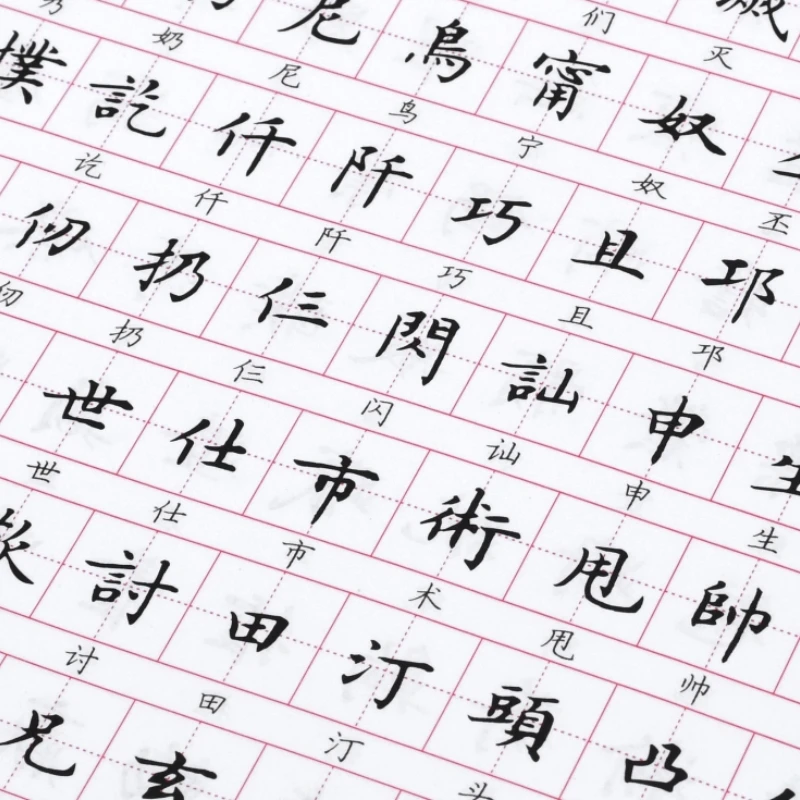 滅
们 灭
尼 鳥 甯 奴
奶 尼 鸟 宁 奴 丕
撲 訖 仟 阡 巧 且 邛
讫 仟 阡 巧 且 邛
仞 扔 仨 閃 訕 申 生
仞 扔 仨 闪 讪 申 生
世 仕 市 術 甩 帥
世 仕 市 术 甩 帅
討 田 汀 頭 凸
讨 田 汀 头
兄 玄